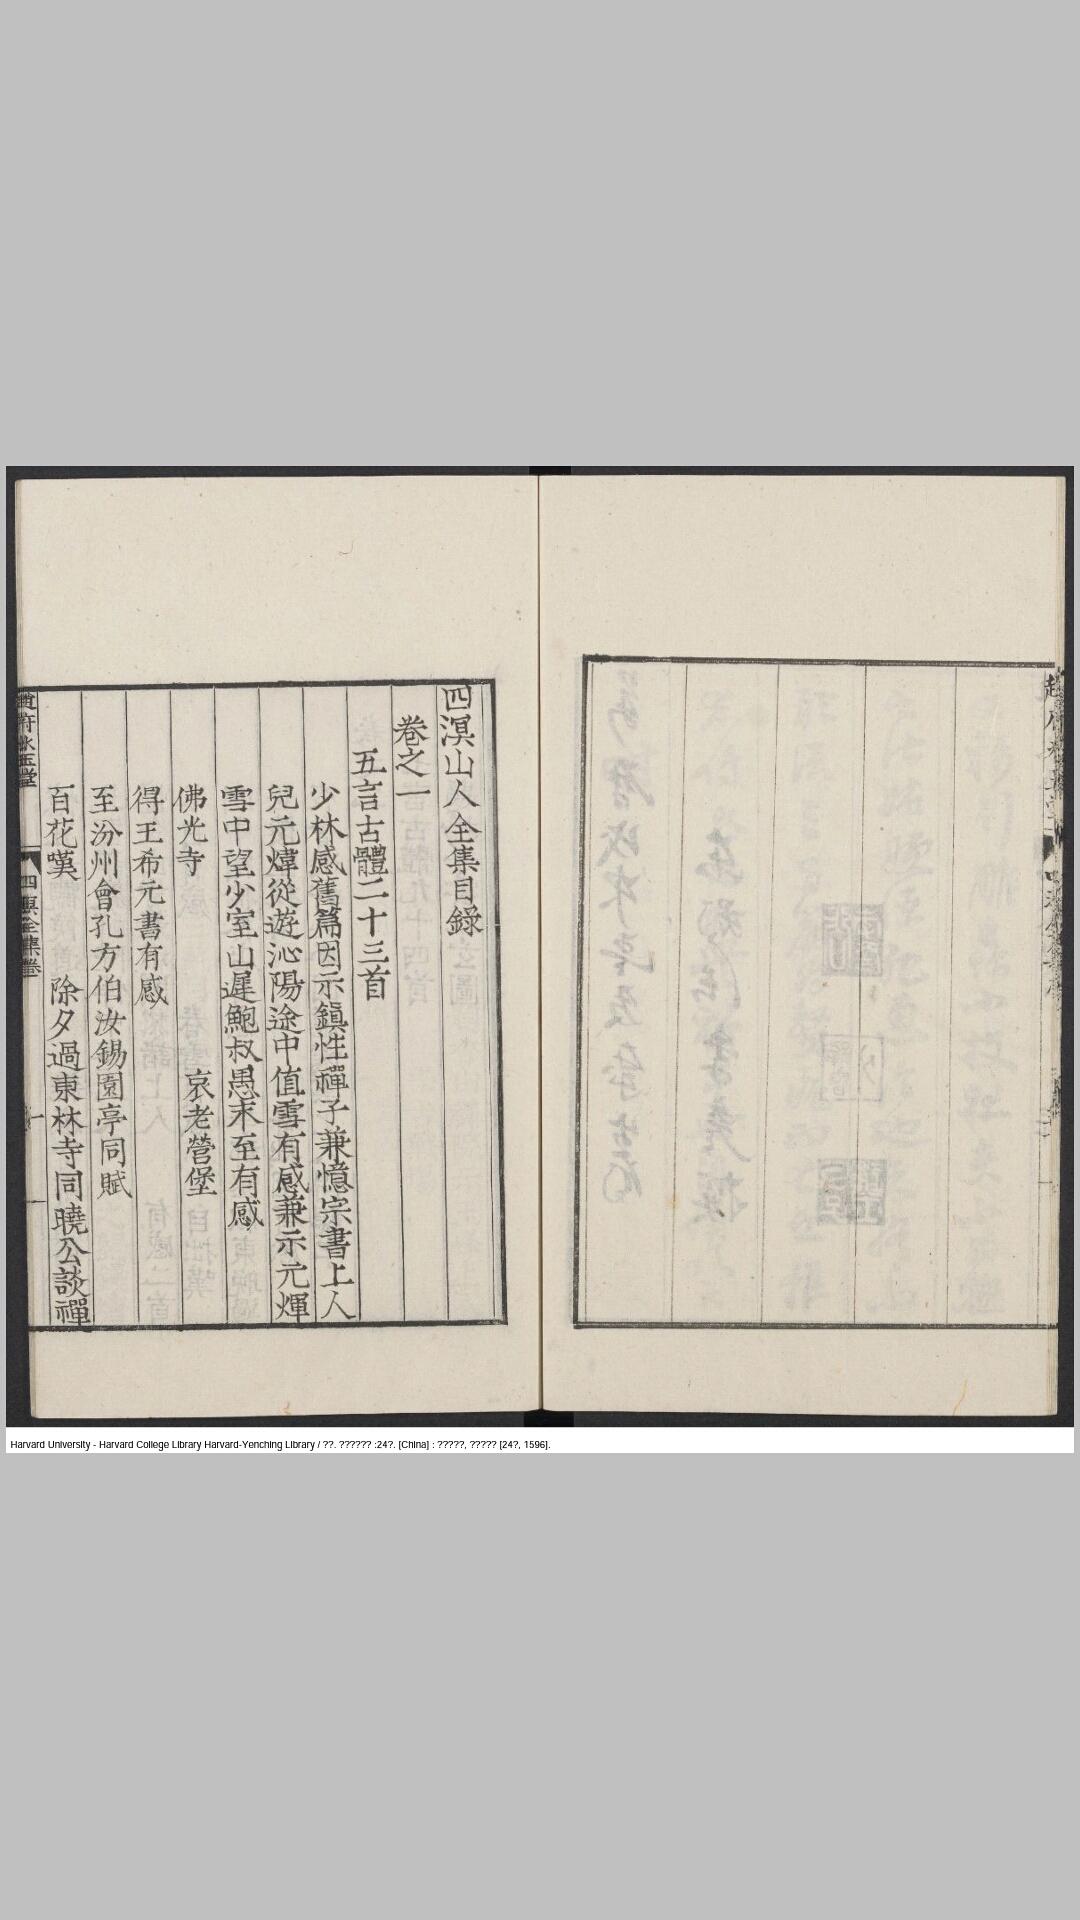 四溟山人全集目録
卷之一
五言古體二十三首
少林感舊篇因示鎮性禪子兼憶宗書上人
兒元煒從遊沁陽途中值雪有感兼示元煇
雪中望少室山遲鮑叔愚未至有感
佛光寺 哀老營堡
得王希元書有感
至汾州會孔方伯汝錫園亭同賦
百花嘆 除夕過東林寺同曉公談禪
趙府冰玉堂 四溟全集卷 一
Harvard University - Harvard College Library Harvard-Yenching Library / ??. ?????? :24?. [China] : ?????, ????? [24?, 1596].